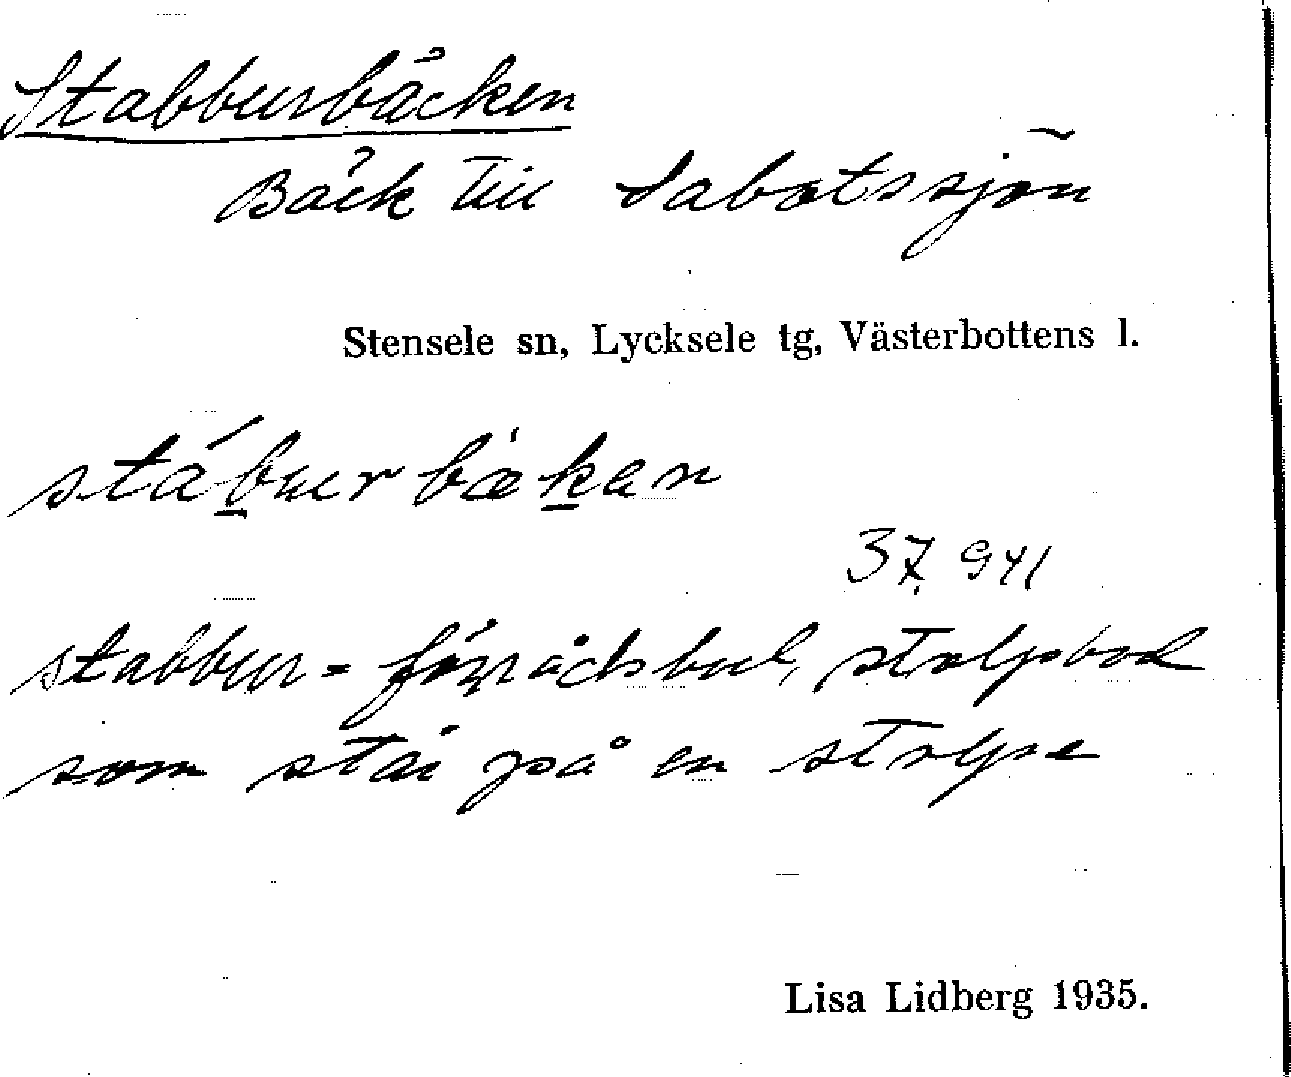 Stabburbäcken
Bäck till Sabotssjön
Stensele sn, Lycksele tg, Västerbottens l.
stábur bækan
37. 941
stabbur = förrådsbod, stolpbod
som står på en stolpe
Lisa Lidberg 1935.